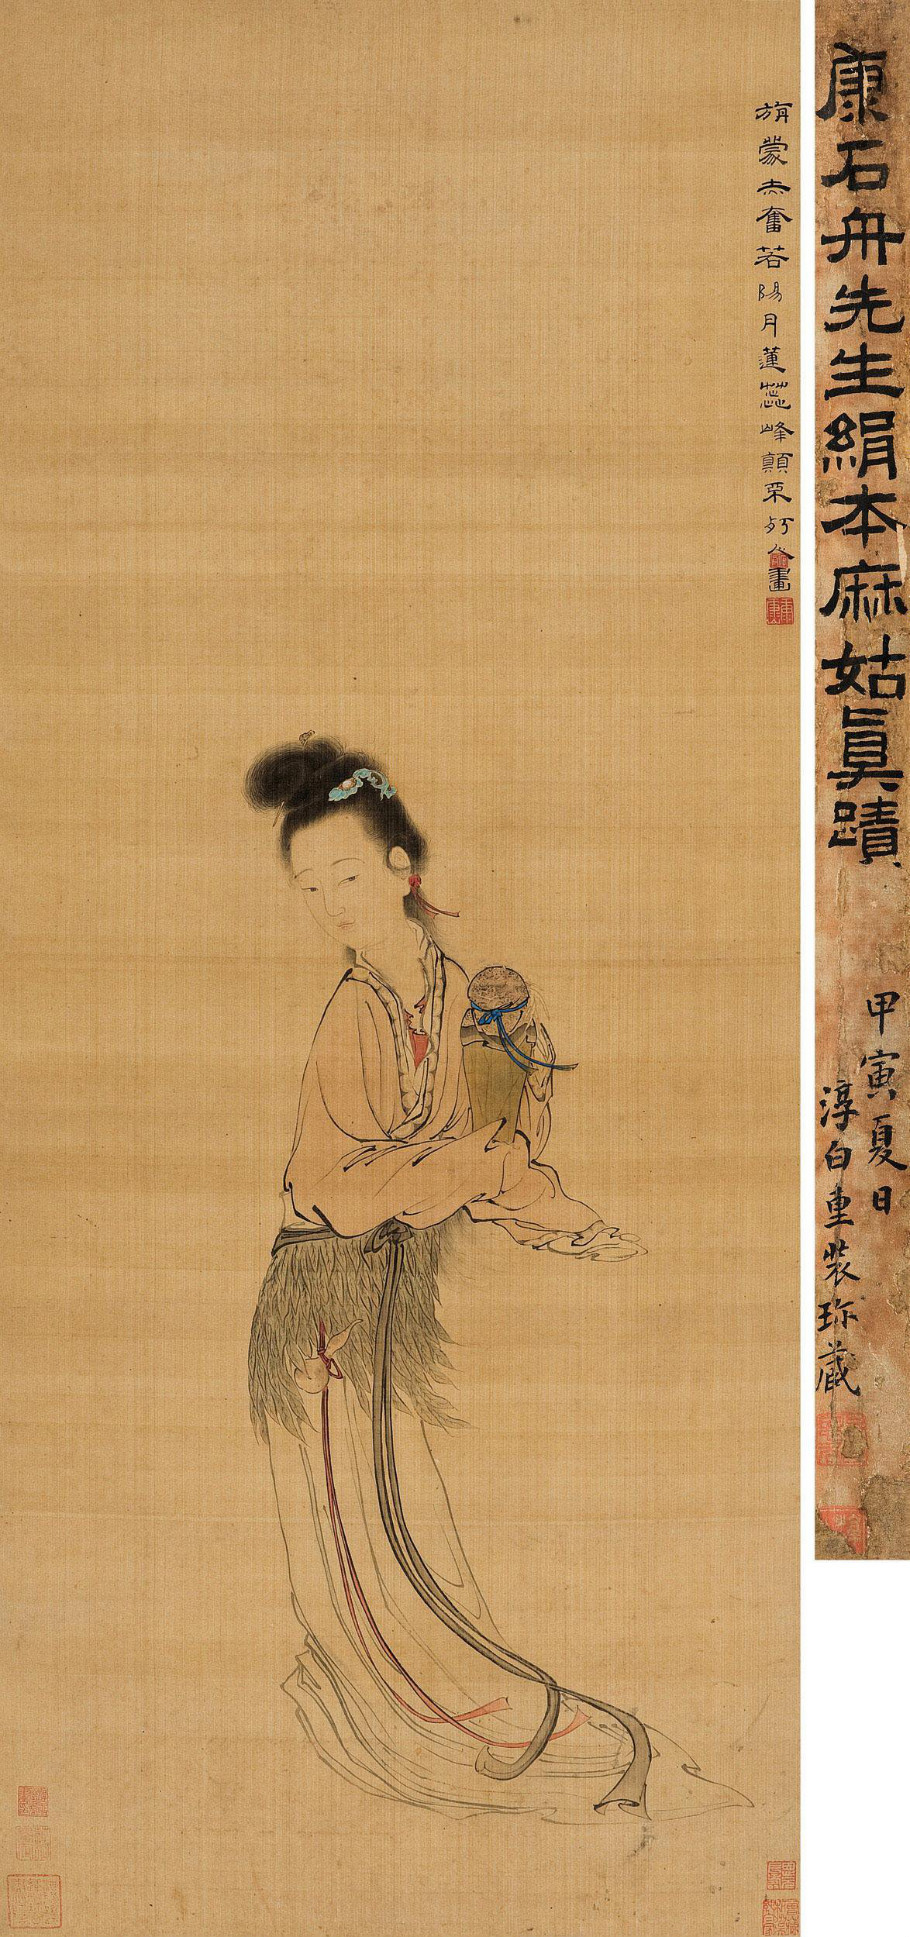 旃蒙赤奮若陽月蓮蕊峰顛不朽人畫
康石舟先生絹本麻姑眞蹟
甲寅夏日
淳白重裝珎藏